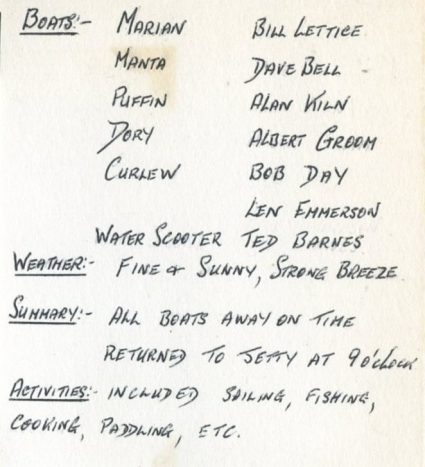 BOATS:- MARIAN BILL LETTICE
MANTA DAVE BELL
PUFFIN ALAN KILN
DORY ALBERT GROOM
CURLEW BOB DAY
LEN EMMERSON
WATER SCOOTER TED BARNES
WEATHER:- FINE & SUNNY, STRONG BREEZE.
SUMMARY:- ALL BOATS AWAY ON TIME
RETURNED TO JETTY AT 9 O'CLOCK
ACTIVITIES:- INCLUDED SAILING, FISHING,
COOKING, PADDLING, ETC.